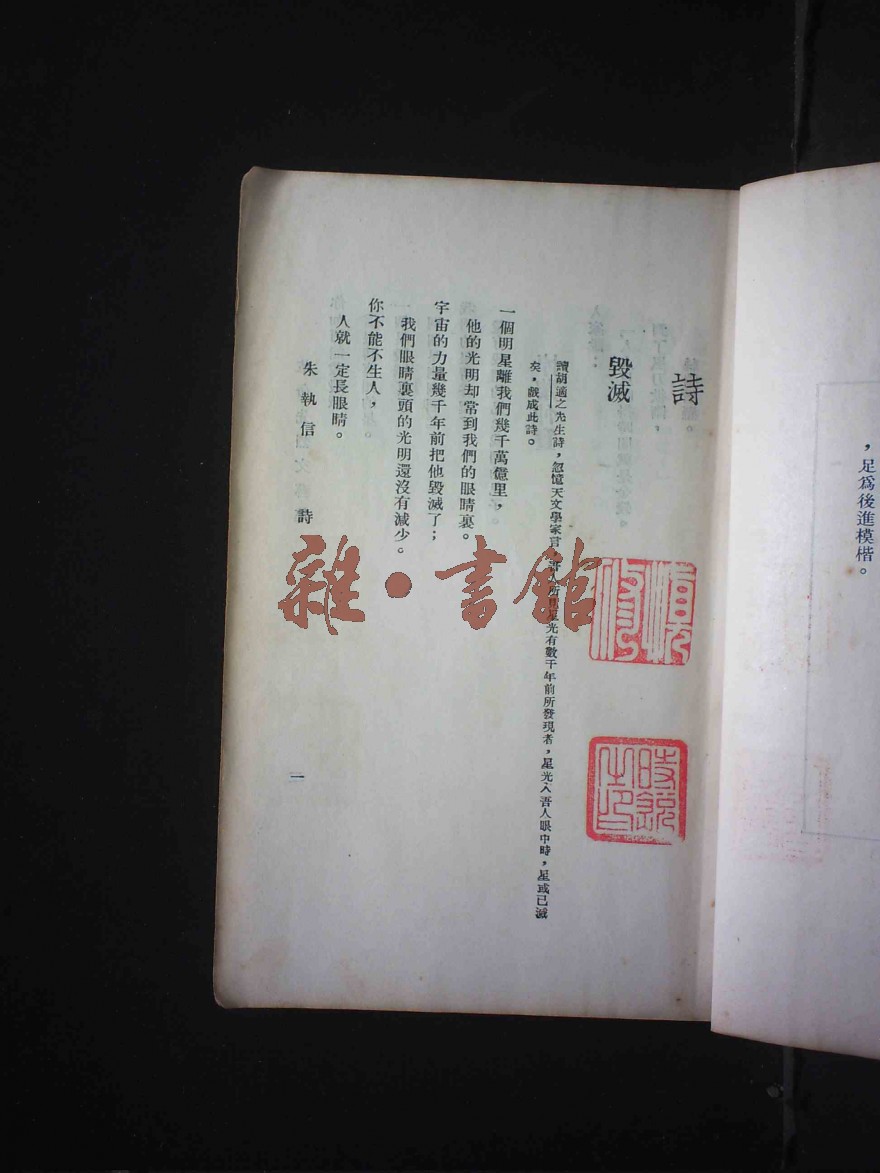 ，足爲後進模楷。
詩
毀滅
讀胡適之先生詩，忽憶天文學家言，吾人所見星光有數千年前所發現者，星光入吾人眼中時，星或已滅
矣，戲成此詩。
一個明星離我們幾千萬億里，
他的光明却常到我們的眼睛裏。
宇宙的力量幾千年前把他毀滅了；
我們眼睛裏頭的光明還沒有減少。
你不能不生人，
人就一定長眼睛。
朱執信　　詩
一
雜·書館